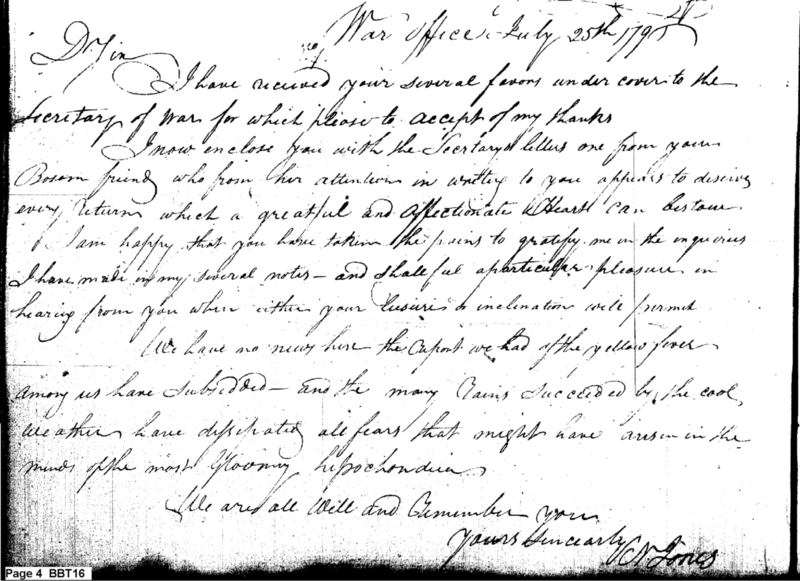 War office July 25th 179
Dr Sir
I have received your several favors under cover to the
Secretary of War for which please to accept of my thanks
I now enclose you with the Secretarys letters one from your
Bosom friend who from her attention in writing to you appears to deserve
every return which a greatful and affectionate Heart can bestow
I am happy that you have taken the pains to gratify me in the inquiries
I have made in my several notes - and shall feel a particular pleasure in
hearing from you when either your leisure or inclination will permit
We have no news here the Report we had of the yellow fever
among us have subsidded - and the many Rains succeeded by the cool
weather have dissipated all fears that might have arisen in the
minds of the most gloomy hipochondriac
We are all well and Remember you
yours Sincearly
Jones
Page 4 BBT16